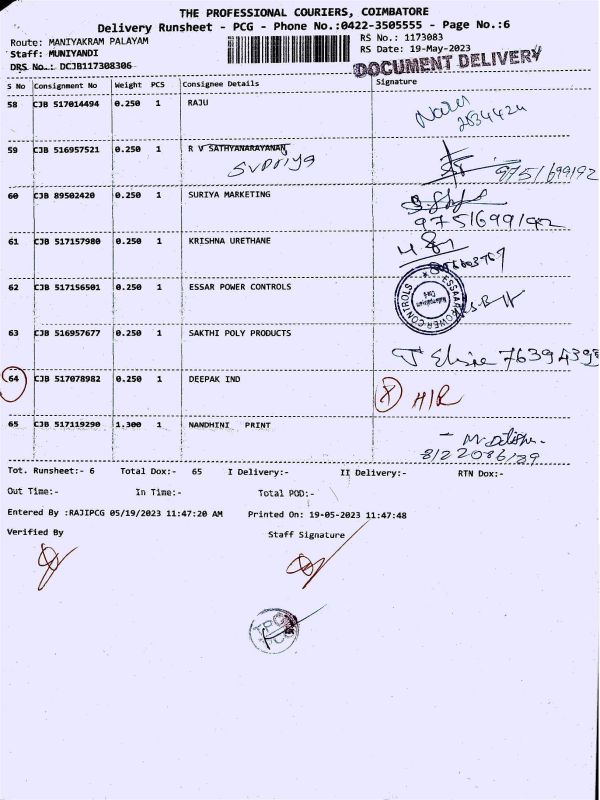 THE PROFESSIONAL COURIERS, COIMBATORE
Delivery Runsheet - PCG - Phone No.:0422-3505555 - Page No.:6
Route: MANIYAKRAM PALAYAM
RS No.: 1173083
Staff: MUNIYANDI
RS Date: 19-May-2023
DRS No.: DCJB117308306
DOCUMENT DELIVERY
S No Consignment No Weight PCS Consignee Details Signature
58 CJB 517014494 0.250 1 RAJU
59 CJB 516957521 0.250 1 R V SATHYANARAYANAN
9751699192
60 CJB 89502420 0.250 1 SURIYA MARKETING
9751699192
61 CJB 517157980 0.250 1 KRISHNA URETHANE
62 CJB 517156501 0.250 1 ESSAR POWER CONTROLS
63 CJB 516957677 0.250 1 SAKTHI POLY PRODUCTS
64 CJB 517078982 0.250 1 DEEPAK IND
65 CJB 517119290 1.300 1 NANDHINI PRINT
8122086139
Tot. Runsheet:- 6 Total Dox:- 65 I Delivery:- II Delivery:- RTN Dox:-
Out Time:- In Time:- Total POD:-
Entered By :RAJIPCG 05/19/2023 11:47:20 AM Printed On: 19-05-2023 11:47:48
Verified By Staff Signature